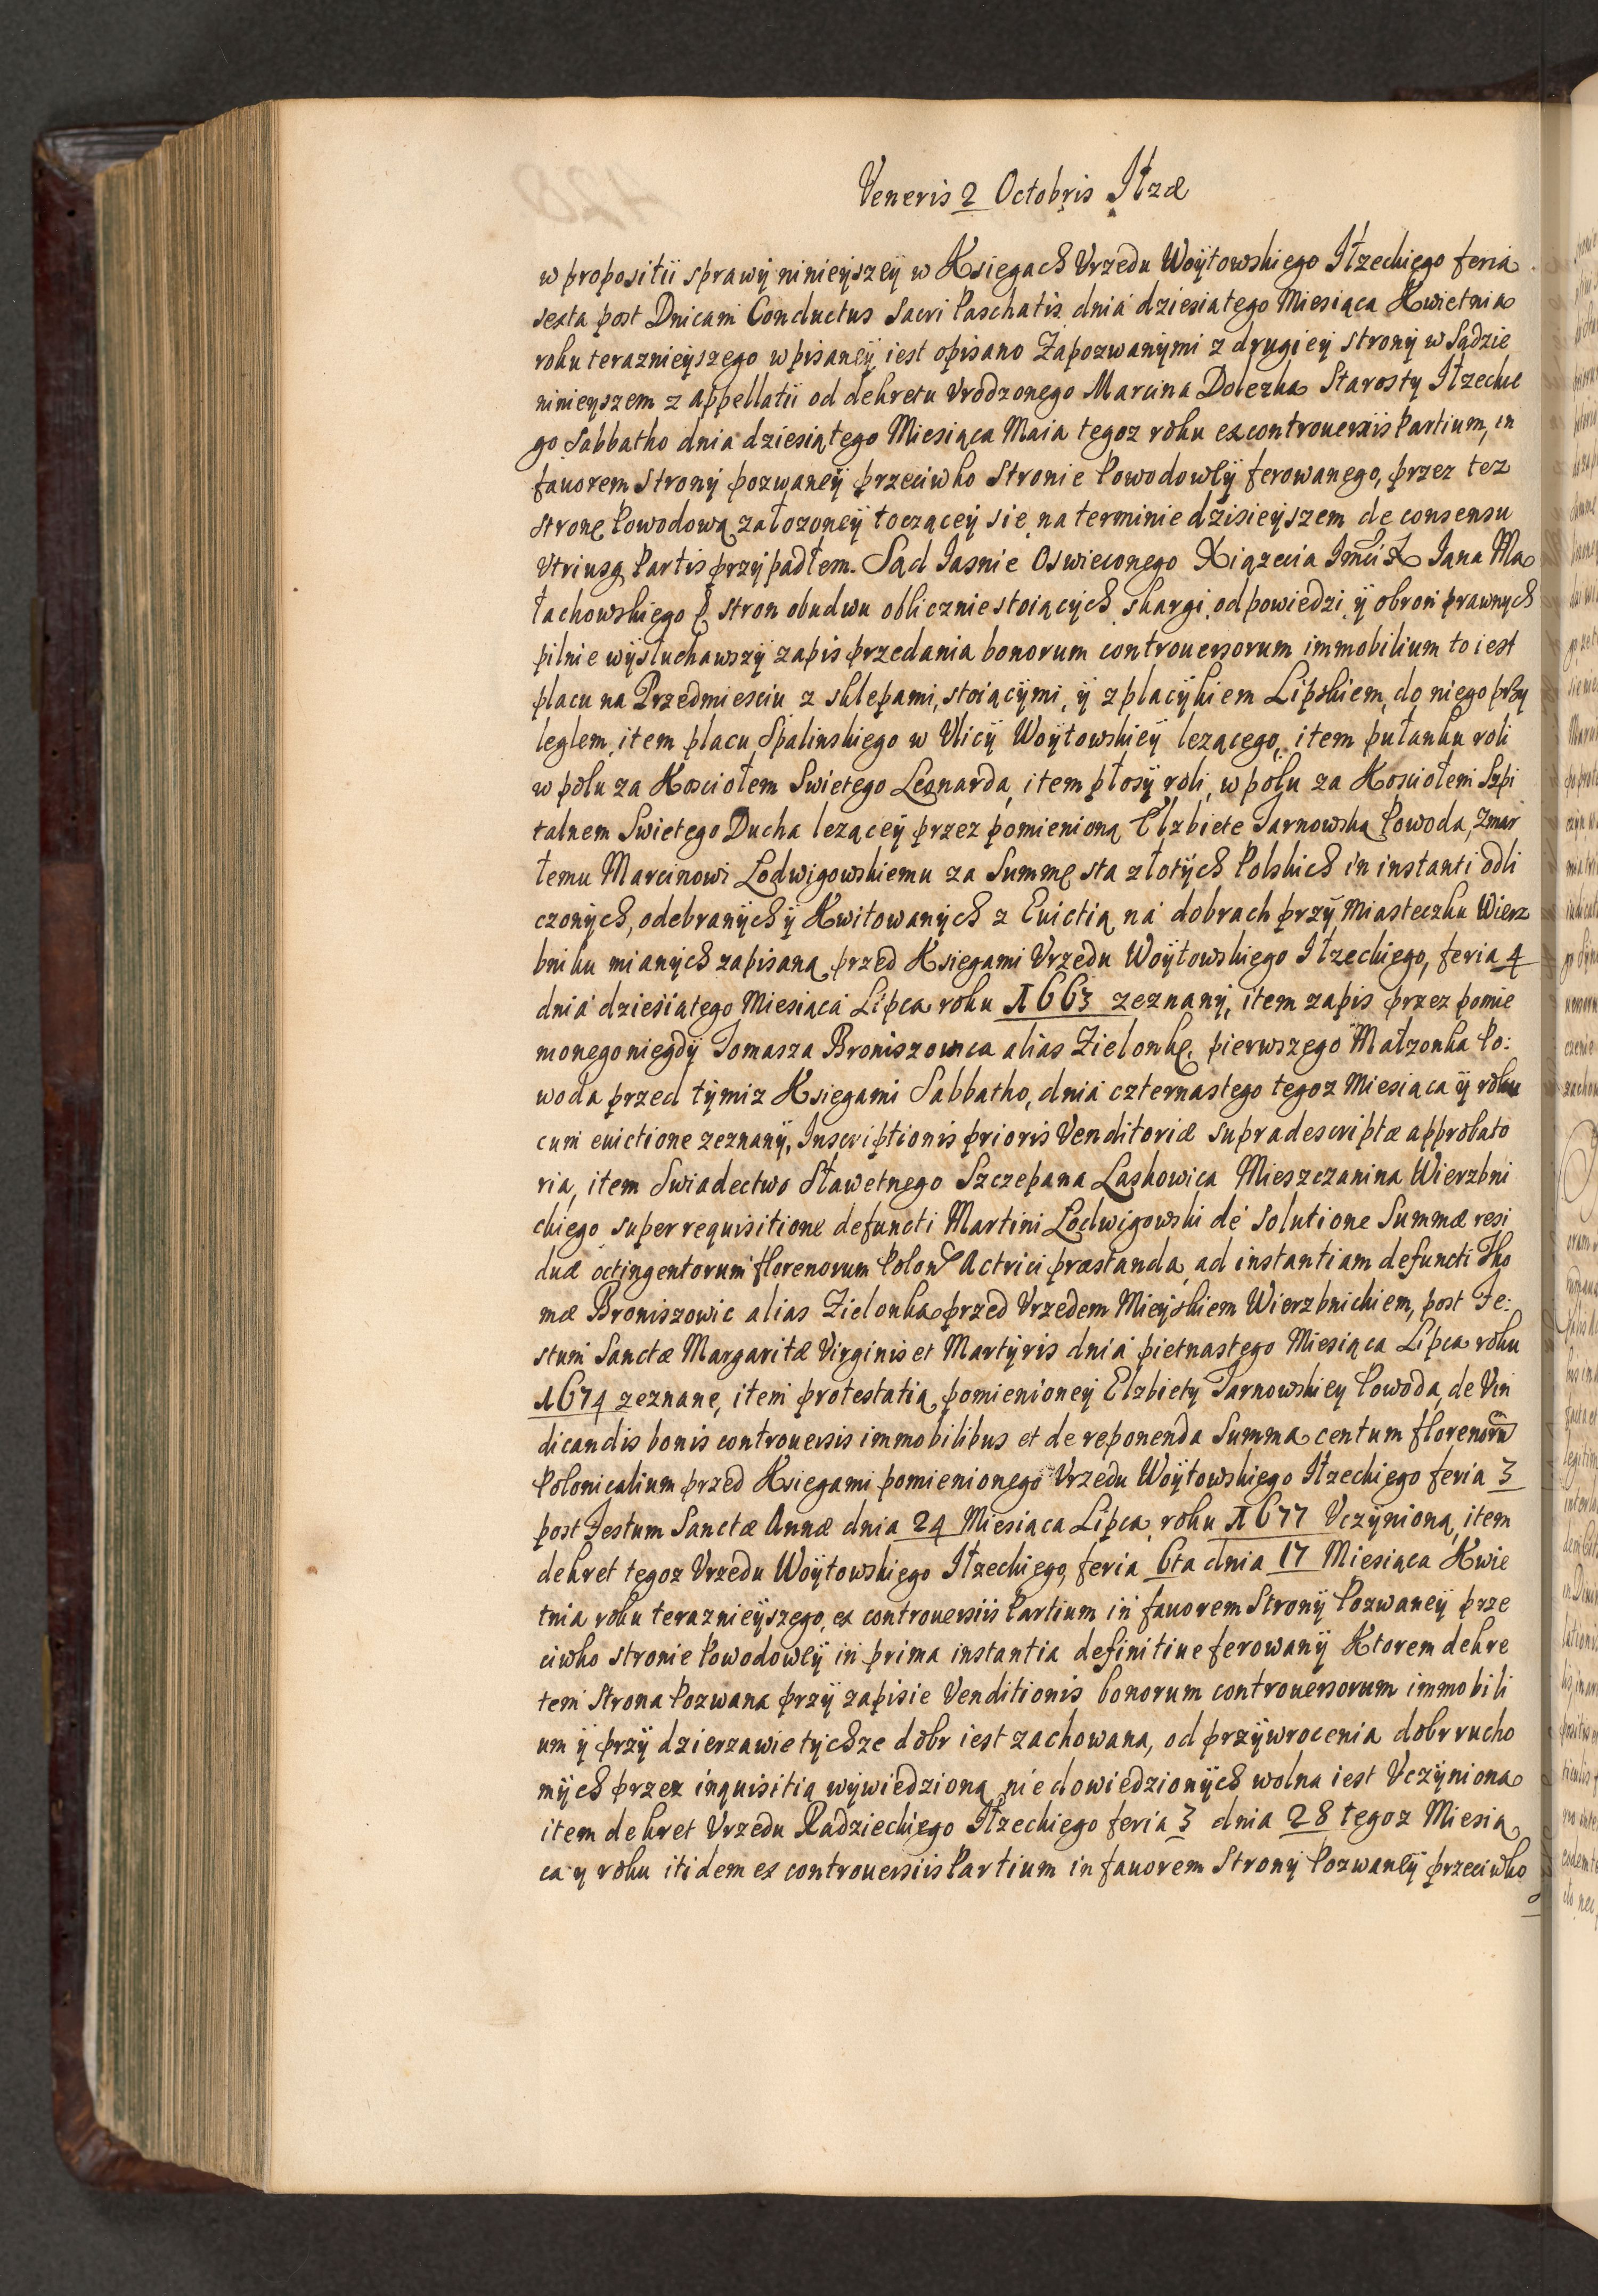 Veneris 2 Octobris Iłzæ
w propositii sprawÿ ninieÿszeÿ w Ksiegach Vrzedu Woÿtowskiego Iłzeckiego feria
sexta post Dnicam Conductus Sacri Paschatis dnia dziesiatego Miesiąca Kwietnia
roku teraznieÿszego wpisaneÿ iest opisano Zapozwanÿmi z drugieÿ stronÿ w Sądzie
ninieyszem z appellatii od dekretu Vrodzonego Marcina Dolezka Starosty Iłzeckie
go Sabbatho dnia dziesiątego Miesiąca Maia tegoz roku ex controuersiis Partium, in
fauorem stronÿ pozwaneÿ przeciwko Stronie Powodowëÿ ferowanego, przez tez
stronę Powodową załozoneÿ toczącëÿ się na terminie dzisieÿszem de consensu
Vtriusq Partis przÿpadłem. Sąd Iasnie Oswieconego Xiązecia Imci X Iana Ma
łachowskiego stron obudwu oblicznie stoiącÿch, skargi, odpowiedzi ÿ obron prawnych
pilnie wÿsłuchawszÿ zapis przedania bonorum controuersorum immobilium to iest
placu na Przedmiesciu z sklepami, stoiącÿmi, ÿ z placÿkiem Lipskiem, do niego przy
leglem, item placu Spalinskiego w Vlicÿ Woÿtowskieÿ lezącego, item pułanku roli
w polu za Kosciołem Swietego Leonarda, item płosÿ roli, w polu za Kosciołem Szpi
talnem Swietego Ducha lezącëÿ przez pomienioną Elzbiete Tarnowską Powoda, Zmar
łemu Marcinowi Lodwigowskiemu za Summę sta złotÿch Polskich in instanti odli
czonÿch, odebranÿch ÿ Kwitowanÿch z Euictią na dobrach przÿ Miasteczku Wierz
bniku mianÿch zapisaną przed Ksiegami Vrzedu Woÿtowskiego Iłzeckiego, feria 4
dnia dziesiątego Miesiąca Lipca roku 1663 zeznanÿ, item zapis przez pomie
nionego niegdÿ Tomasza Broniszowica alias Zielonkę, pierwszego Małzonka Po:
woda przed tÿmiz Ksiegami Sabbatho, dnia czternastego tegoz Miesiąca ÿ roku
cum euictione zeznanÿ, Inscriptionis prioris Venditoriæ supradescriptæ approbato
ria, item Swiadectwo Sławetnego Szczepana Laskowica Mieszczanina Wierzbni
ckiego super requisitione defuncti Martini Lodwigowski de solutione Summæ resi
duæ octingentorum florenorum Polon Actrici præstanda, ad instantiam defuncti Tho
mæ Broniszowic alias Zielonka przed Vrzedem Mieÿskiem Wierzbnickiem, post Fe:
stum Sanctæ Margaritæ Virginis et Martÿris dnia pietnastego Miesiąca Lipca roku
1674 zeznane, item protestatią pomienionëÿ Elzbiety Tarnowskiey Powoda, de Vin
dicandis bonis controuersis immobilibus et de reponenda Summa centum florenorũ
Polonicalium przed Ksiegami pomienionego Vrzedu Woÿtowskiego Iłzeckiego feria 3
post Festum Sanctæ Annæ dnia 24 Miesiąca Lipca, roku 1677 Vczÿnioną, item
dekret tegoz Vrzedu Woÿtowskiego Iłzeckiego, feria 6ta dnia 17 Miesiąca Kwie
tnia roku teraznieÿszego, ex controuersiis Partium in fauorem Stronÿ Pozwaneÿ prze
ciwko stronie Powodowëÿ in prima instantia definitiue ferowanÿ Ktorem dekre
tem Strona Pozwana przÿ zapisie Venditionis bonorum controuersorum immobili
um ÿ przÿ dzierzawie tÿchze dobr iest zachowana, od przÿwrocenia dobr rucho
mÿch przez inquisitią wÿwiedzioną nie dowiedzionÿch wolna iest Vczÿniona
item dekret Vrzedu Radzieckiego Iłzeckiego feria 3 dnia 28 tegoz Miesią
ca y roku itidem ex controuersiis Partium in fauorem Stronÿ Pozwanëÿ przeciwko